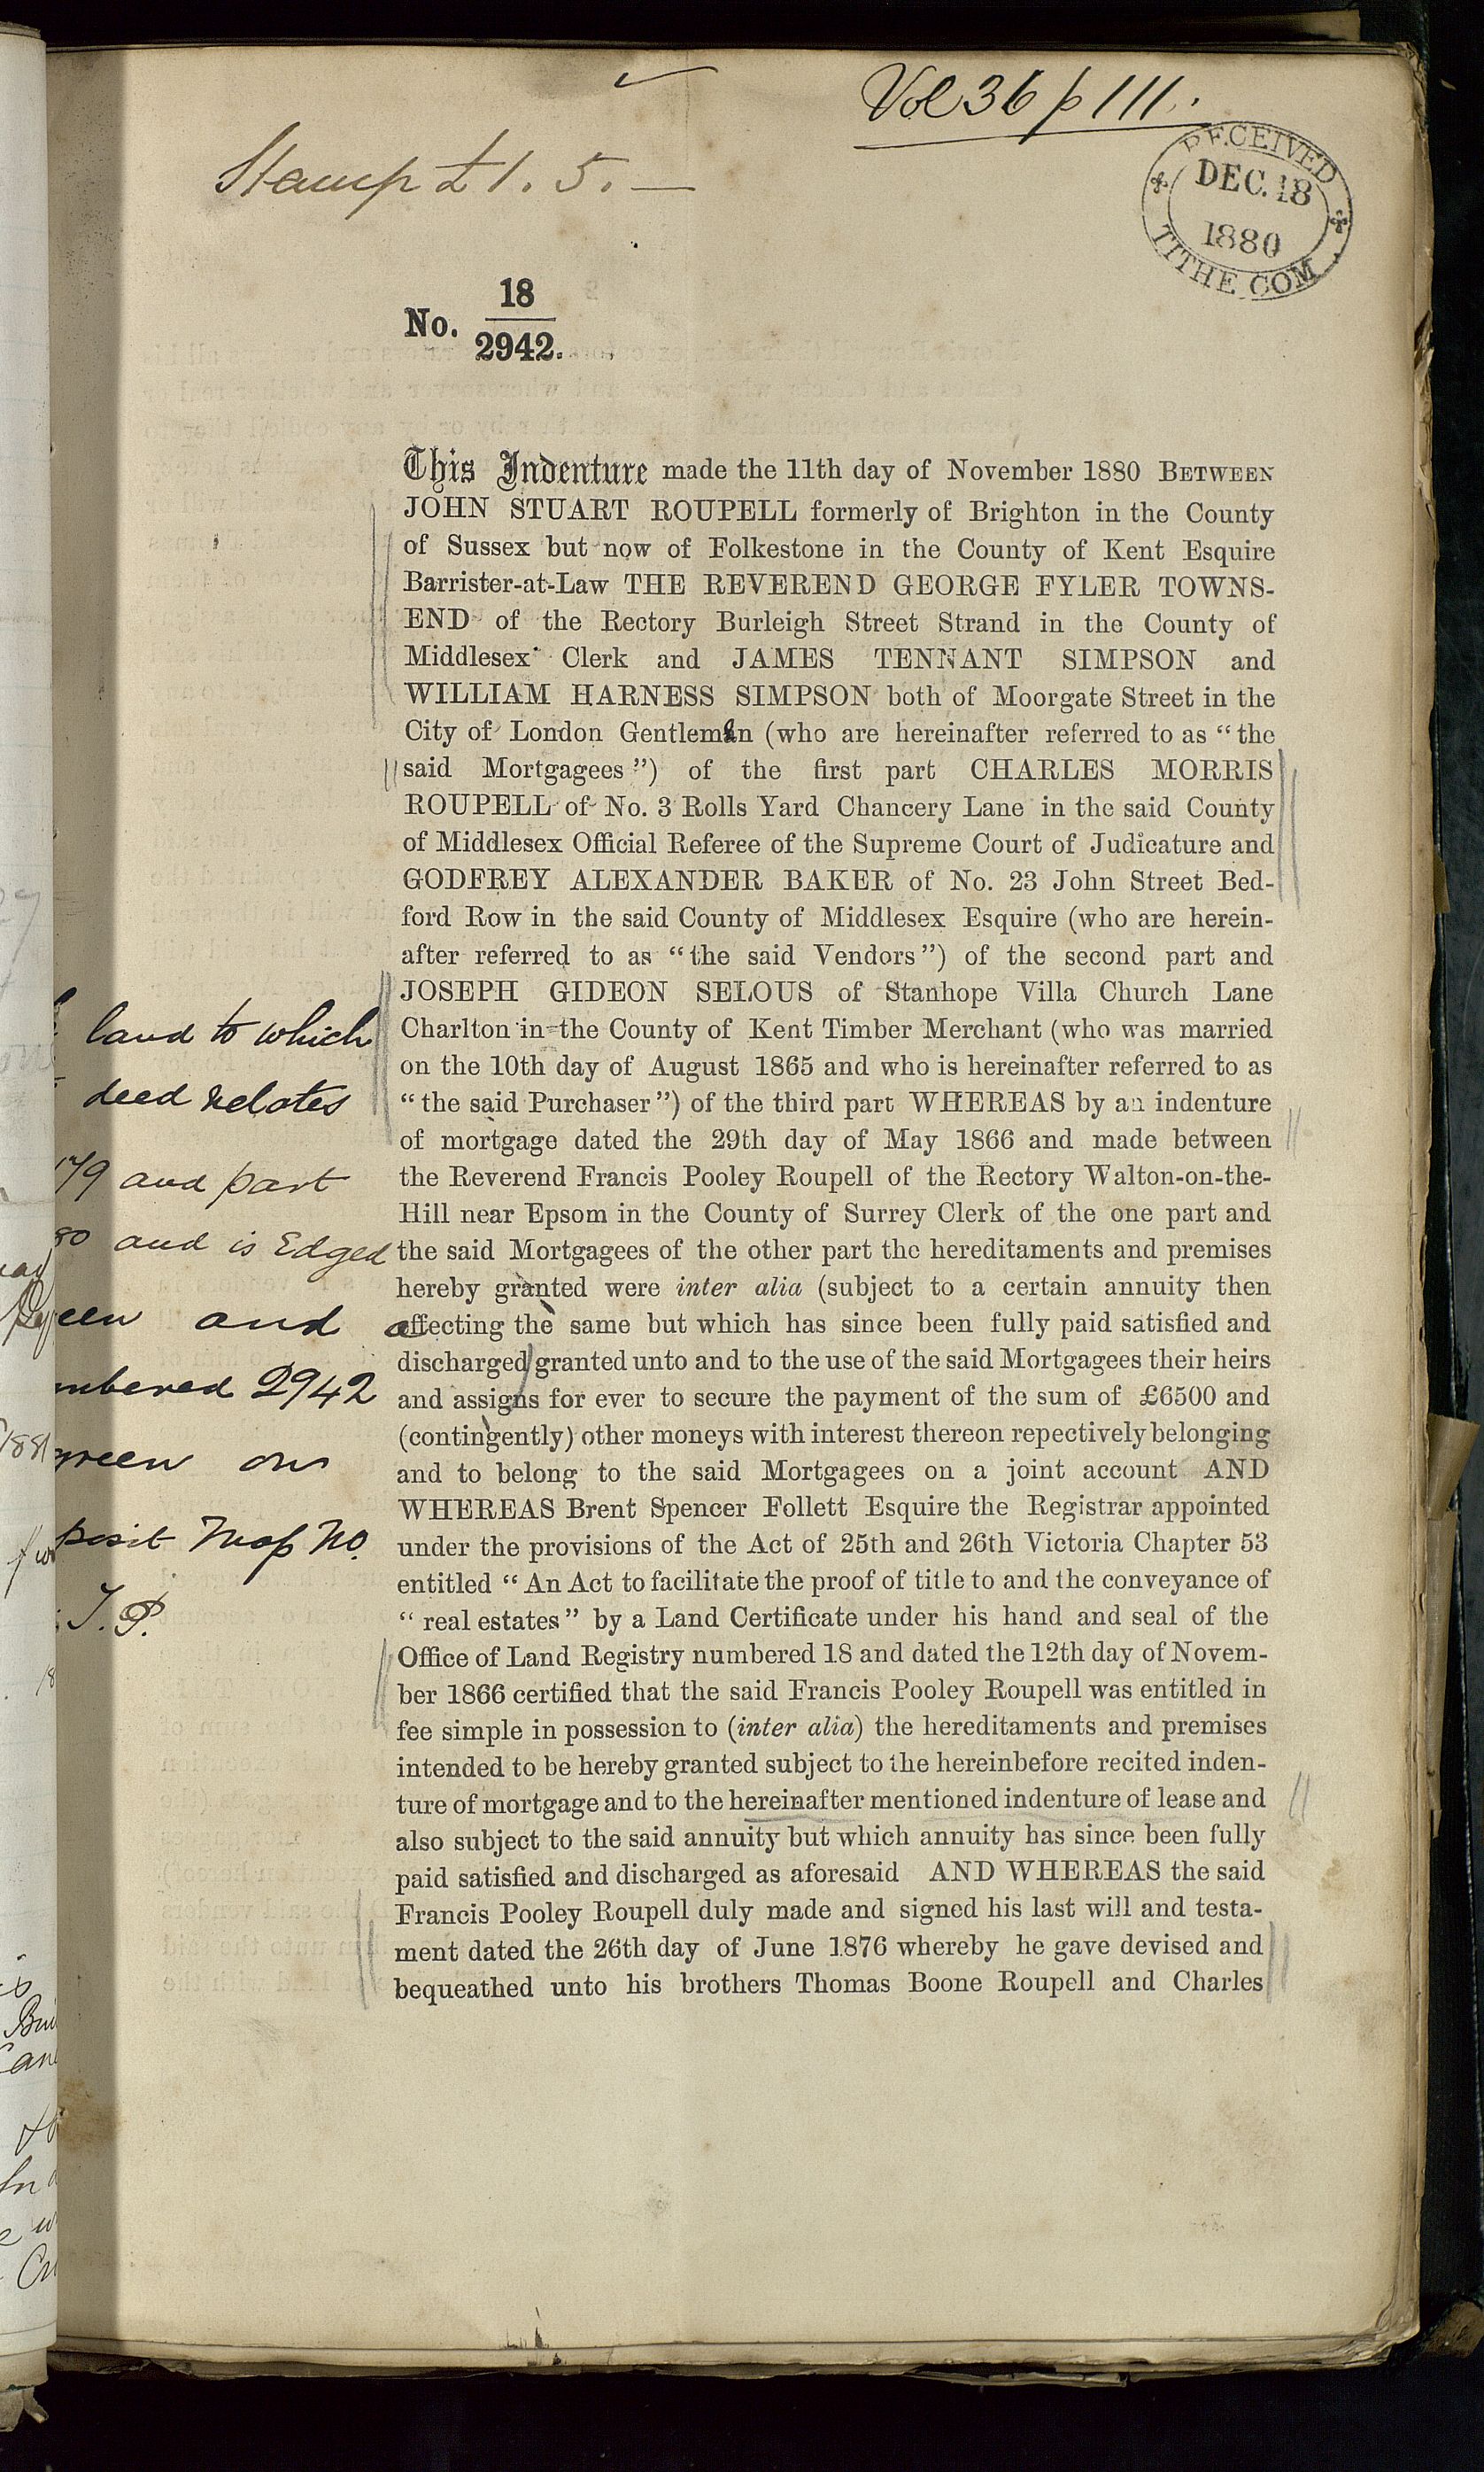 Vol 36 p 111.
Stamp £1. 5. —
RECEIVED
DEC. 18
1880
TITHE COM
No. 18
2942.
This Indenture made the 11th day of November 1880 BETWEEN
JOHN STUART ROUPELL formerly of Brighton in the County
of Sussex but now of Folkestone in the County of Kent Esquire
Barrister-at-Law THE REVEREND GEORGE FYLER TOWNS-
END of the Rectory Burleigh Street Strand in the County of
Middlesex Clerk and JAMES TENNANT SIMPSON and
WILLIAM HARNESS SIMPSON both of Moorgate Street in the
City of London Gentlemen (who are hereinafter referred to as “the
said Mortgagees”) of the first part CHARLES MORRIS
ROUPELL of No. 3 Rolls Yard Chancery Lane in the said County
of Middlesex Official Referee of the Supreme Court of Judicature and
GODFREY ALEXANDER BAKER of No. 23 John Street Bed-
ford Row in the said County of Middlesex Esquire (who are herein-
after referred to as “the said Vendors”) of the second part and
JOSEPH GIDEON SELOUS of Stanhope Villa Church Lane
Charlton in the County of Kent Timber Merchant (who was married
on the 10th day of August 1865 and who is hereinafter referred to as
“the said Purchaser”) of the third part WHEREAS by an indenture
of mortgage dated the 29th day of May 1866 and made between
the Reverend Francis Pooley Roupell of the Rectory Walton-on-the-
Hill near Epsom in the County of Surrey Clerk of the one part and
the said Mortgagees of the other part the hereditaments and premises
hereby granted were inter alia (subject to a certain annuity then
affecting the same but which has since been fully paid satisfied and
discharged) granted unto and to the use of the said Mortgagees their heirs
and assigns for ever to secure the payment of the sum of £6500 and
(contingently) other moneys with interest thereon repectively belonging
and to belong to the said Mortgagees on a joint account AND
WHEREAS Brent Spencer Follett Esquire the Registrar appointed
under the provisions of the Act of 25th and 26th Victoria Chapter 53
entitled “An Act to facilitate the proof of title to and the conveyance of
“real estates” by a Land Certificate under his hand and seal of the
Office of Land Registry numbered 18 and dated the 12th day of Novem-
ber 1866 certified that the said Francis Pooley Roupell was entitled in
fee simple in possession to (inter alia) the hereditaments and premises
intended to be hereby granted subject to the hereinbefore recited inden-
ture of mortgage and to the hereinafter mentioned indenture of lease and
also subject to the said annuity but which annuity has since been fully
paid satisfied and discharged as aforesaid AND WHEREAS the said
Francis Pooley Roupell duly made and signed his last will and testa-
ment dated the 26th day of June 1876 whereby he gave devised and
bequeathed unto his brothers Thomas Boone Roupell and Charles
land to which
deed relates
179 and part
80 and is Edged
een and
mbered 2942
green on
posit Map No.
T. P.